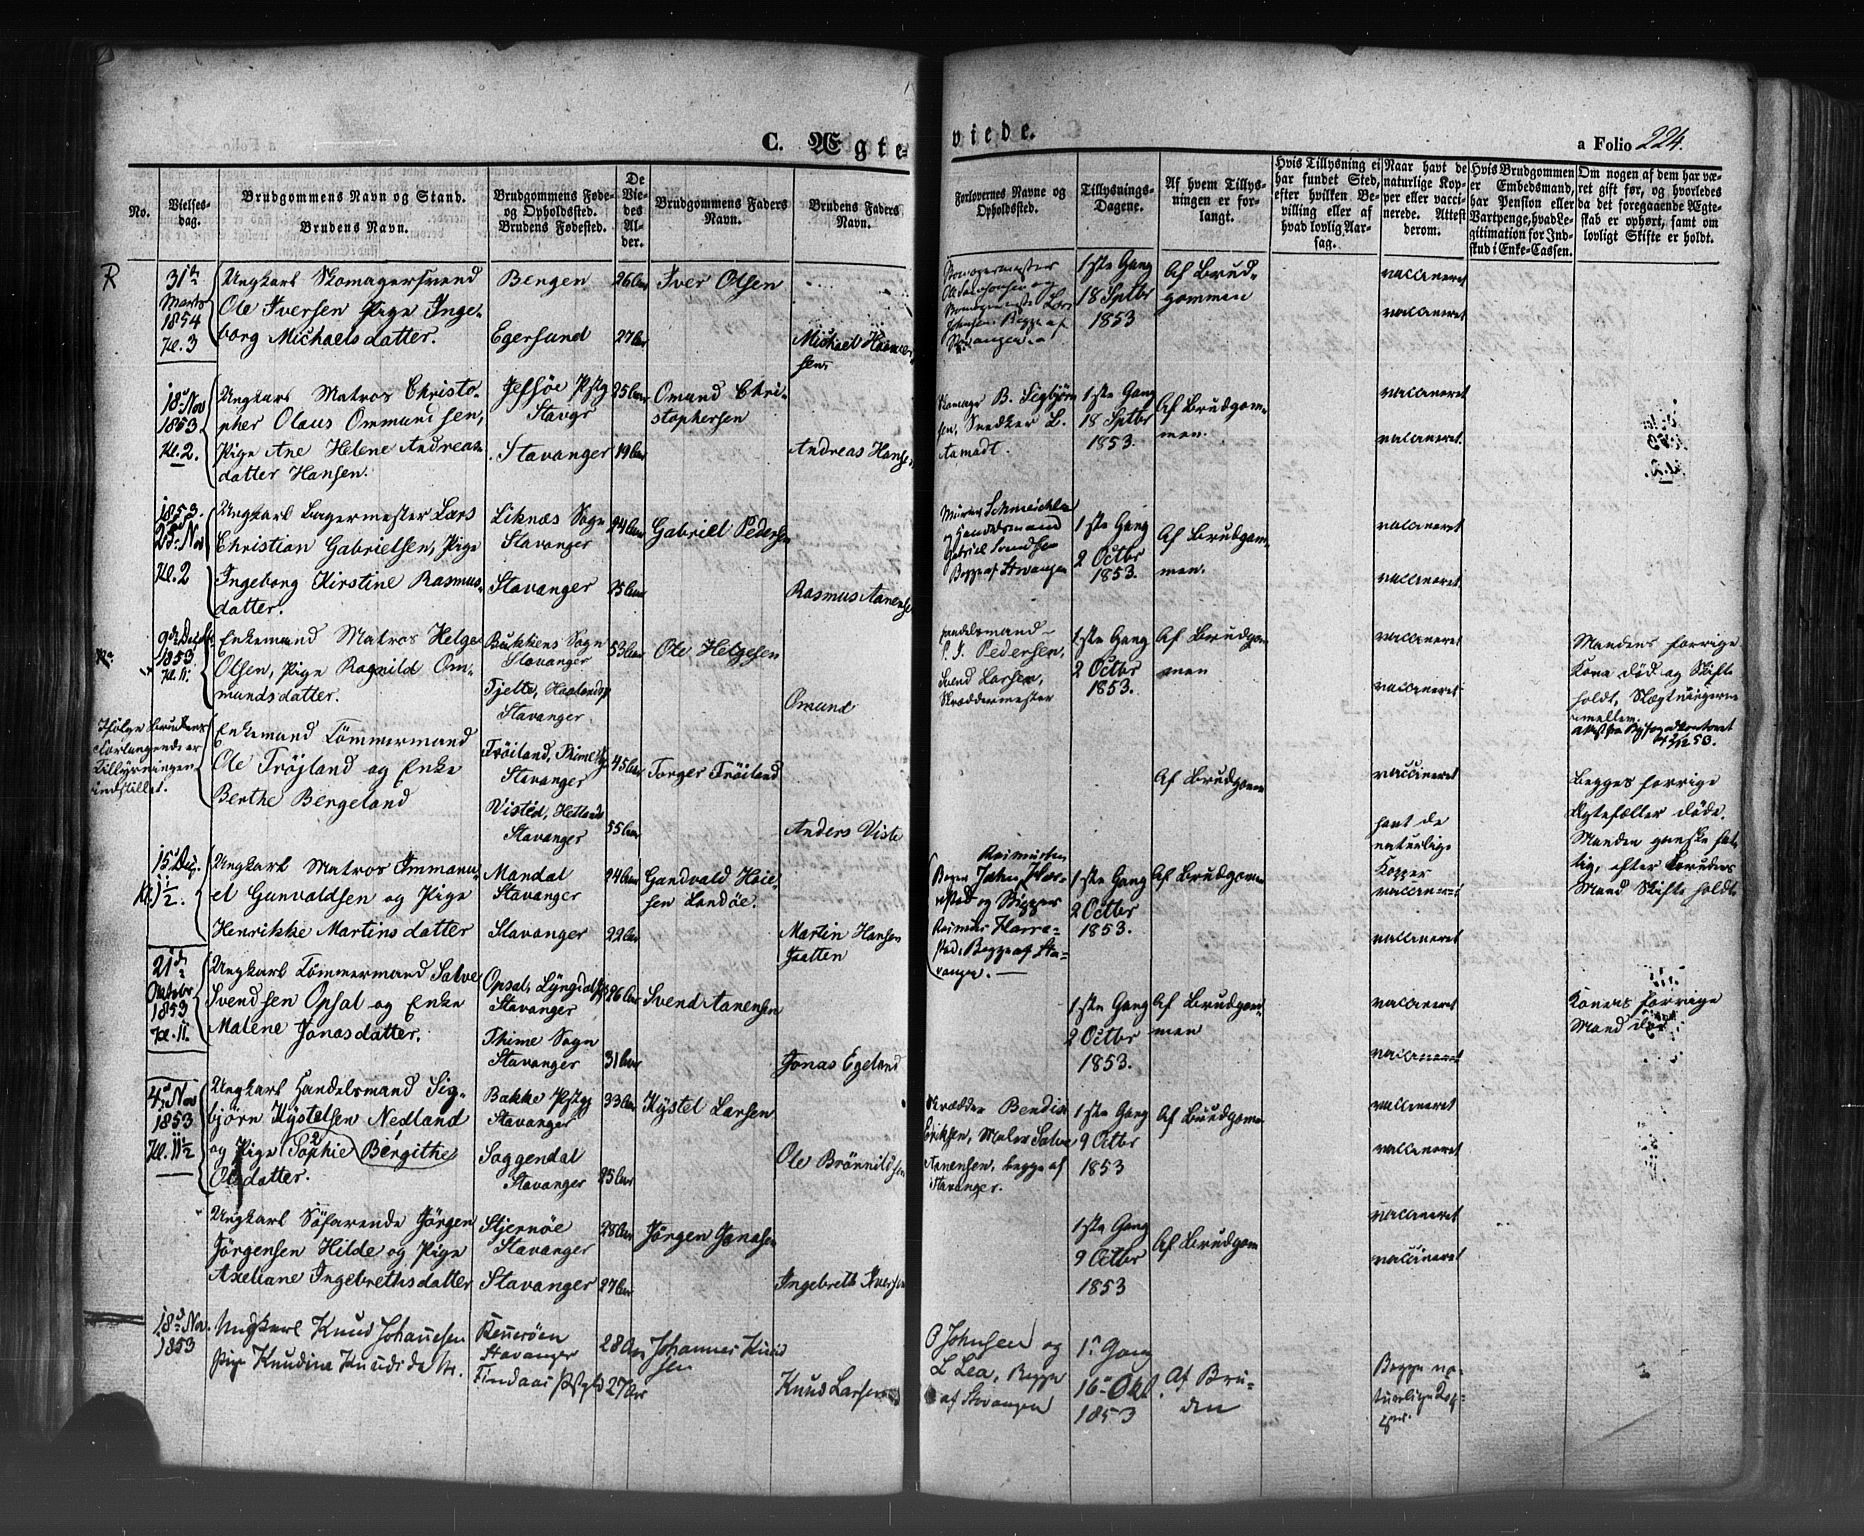 C. Ægte-
viede.
a Folio 224.
No.
Vielses-
dag.
Brudgommens Navn og Stand.
Brudens Navn.
Brudgommens Føde-
og Opholdssted.
Brudens Fødested.
De
Vie-
des
Al-
der.
Brudgommens Faders
Navn.
Brudens Faders
Navn.
Forlovernes Navne og
Opholdssted.
Tillysnings-
Dagene.
Af hvem Tillys-
ningen er for-
langt.
Hvis Tillysning ei
har fundet Sted,
efter hvilken Be-
villing eller af
hvad lovlig Aar-
sag.
Naar havt de
naturlige Kop-
per eller vacci-
nerede. Attest
derom.
Hvis Brudgommen
er Embedsmand,
har Pension eller
Vartpenge, hvad Le-
gitimation for Ind-
skud i Enke-Cassen.
Om nogen af dem har væ-
ret gift før, og hvorledes
da det foregaaende Ægte-
skab er ophørt, samt om
lovligt Skifte er holdt.
R
31te
Marts
1854
Kl. 3
Ungkarl Skomagersvend
Ole Iversen Pige Inge-
borg Michaelsdatter.
Bergen
Egersund
26 Aar
27 Aar
Iver Olsen
Michael
Begge af
1ste Gang
18 Sptbr
1853
Af Brud-
gommen
vaccineret
vaccineret
18 Nov
1853
Kl. 2.
Ungkarl Matros Christo-
pher Olaus Ommundsen,
Pige Ane Helene Andreas-
datter Hansen.
Stavgr
Stavanger
25 Aar
19 Aar
Omund Chri-
stophersen
Andreas
1ste Gang
18 Sptbr
1853.
Af Brudgom-
men.
vaccineret
vaccineret.
1853.
25 Nov
Kl. 2
Ungkarl Bagermester Lars
Christian Gabrielsen, Pige
Ingeborg Kirstine Rasmus-
datter.
Liknæs Sogn
Stavanger
Stavanger
24 Aar
25 Aar
Gabriel Pedersen
Rasmus
Murer
og Handelsmand
Gabriel Svendsen
Begge af Stavanger
1ste Gang
2 Octbr
1853.
Af Brudgom-
men.
vaccineret
vaccineret
1853.
Kl. 11.
Enkemand Matros Helge
Olsen, Pige Ragnild Om-
mundsdatter.
Sogn
Stavanger
Stavanger
53 Aar
Ole Helgesen
Omund
Handelsmand
Pedersen,
Svend Larsen,
Skræddermester
1ste Gang
2 Octbr
1853.
Af Brudgom-
men
vaccineret
vaccineret
Mandens forrige
Kone død og Skifte
holdt,
mellem
Ifølge Brudens
Forlangende er
Tillysningen
indstillet.
Enkemand Tømmermand
Ole Trøjland og Enke
Berthe Bergeland
Trøiland, Thime
Stavanger
Hetland
Stavanger
45 Aar
55 Aar
Torger Trøiland
Anders Viste
Af Brudgom
vaccineret
havt de
naturlige
Kopper
Begges forrige
Ægtefæller døde.
Manden ganske fat-
tig, efter Brudens
Mand Skifte holdt
Ungkarl Matros Immanu-
el Gunvaldsen og Pige
Henrikke Martinsdatter
Mandal
Stavanger
Stavanger
24 Aar
22 Aar
Martin Hansen
Rasmus
Begge af Sta-
vanger.
1ste Gang
2 Octbr
1853.
Af Brudgom
vaccineret
vaccineret
21de
Octobr
1853
Kl. 11.
Ungkarl Tømmermand Salve
Svendsen Opsal og Enke
Malene Jonasdatter.
Opsal, Lyngdal
Stavanger
Thime Sogn
Stavanger
26 Aar
31 Aar
Svend Aanensen
Jonas Egeland
1ste Gang
2 Octbr
1853.
Af Brudgom-
men
vaccineret
vaccineret
Konens forrige
Mand død
4 Nov
1853
Kl. 11½
Ungkarl Handelsmand Sig-
bjørn Kystelsen Nedland
og Pige Sophie Bergithe
Olsdatter.
Bakke
Stavanger
Soggendal
Stavanger
33 Aar
25 Aar
Kystel Larsen
Ole
Skrædder
Maler Salve
Aanensen, begge af
Stavanger.
1ste Gang
9 Octbr
1853
Af Brudgom
vaccineret
vaccineret
Ungkarl Søfarende Jørgen
Jørgensen Hilde og Pige
Axeliane Ingebrethsdatter
Stjernøe
Stavanger
Stavanger
28 Aar
27 Aar
Jørgen Jonasen
Ingebreth Iversen
1ste Gang
9 Octbr
1853
Af Brudgom
vaccineret
vaccineret
18 Nov.
1853
Ungkarl Knud Johannesen
Pige Knudina Knudsdatter.
Stavanger
28 Aar
27 Aar
Johannes Knud
sen
Knud Larsen
O Johnsen og
L Lea, Begge
af Stavanger
1e Gang
16 Okt.
1853
Af Bru-
den
Begge na-
turlige Kop-
per.